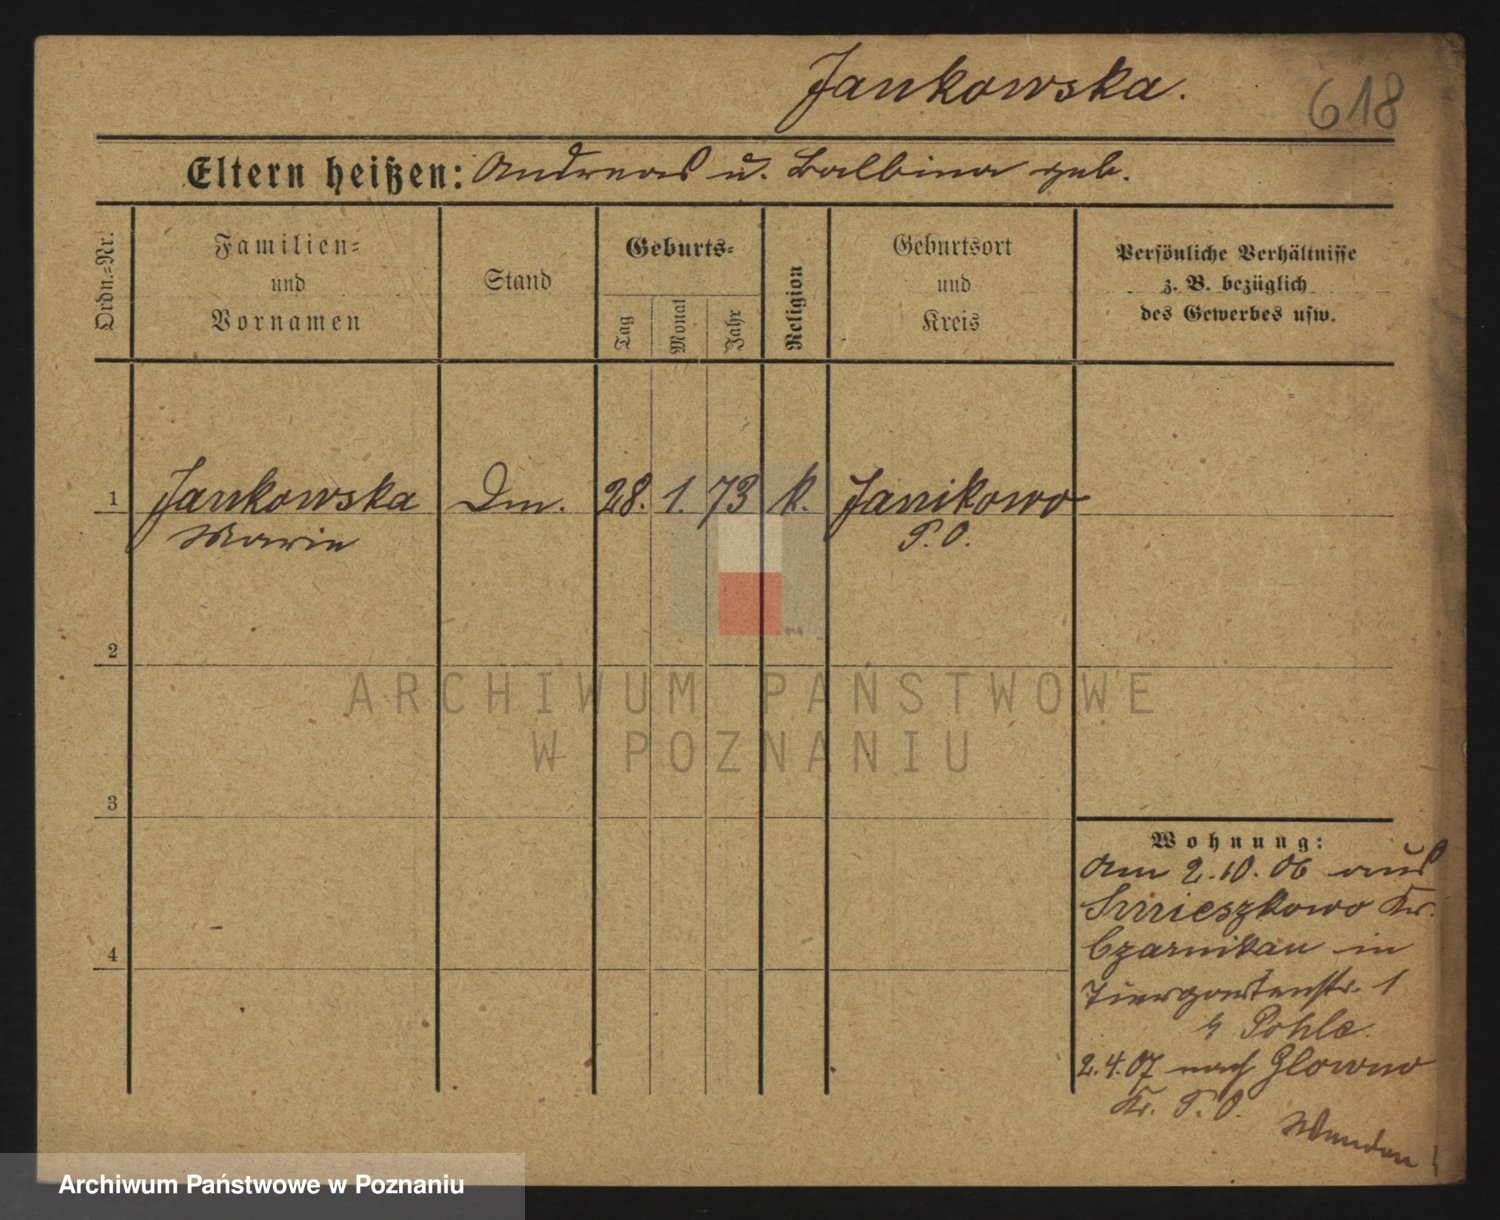 Jankowska.
618
Eltern heißen: Andreas u. Balbina geb.
Ordn.=Nr.
Familien=
und
Vornamen
Stand
Geburts=
Tag
Monat
Jahr
Religion
Geburtsort
und
Kreis
Persönliche Verhältnisse
z. B. bezüglich
des Gewerbes usw.
1 Jankowska Dm. 28. 1. 73 k. Janikowo
Marie P. O.
2
ARCHIWUM PAŃSTWOWE
W POZNANIU
3
Wohnung:
Am 2.10.06 aus
Smieszkowo Kr.
4 Czarnikau in
Tiergartenstr. 1
Pohle.
2.4.07 nach Glowno
Kr. P. O.
Archiwum Państwowe w Poznaniu